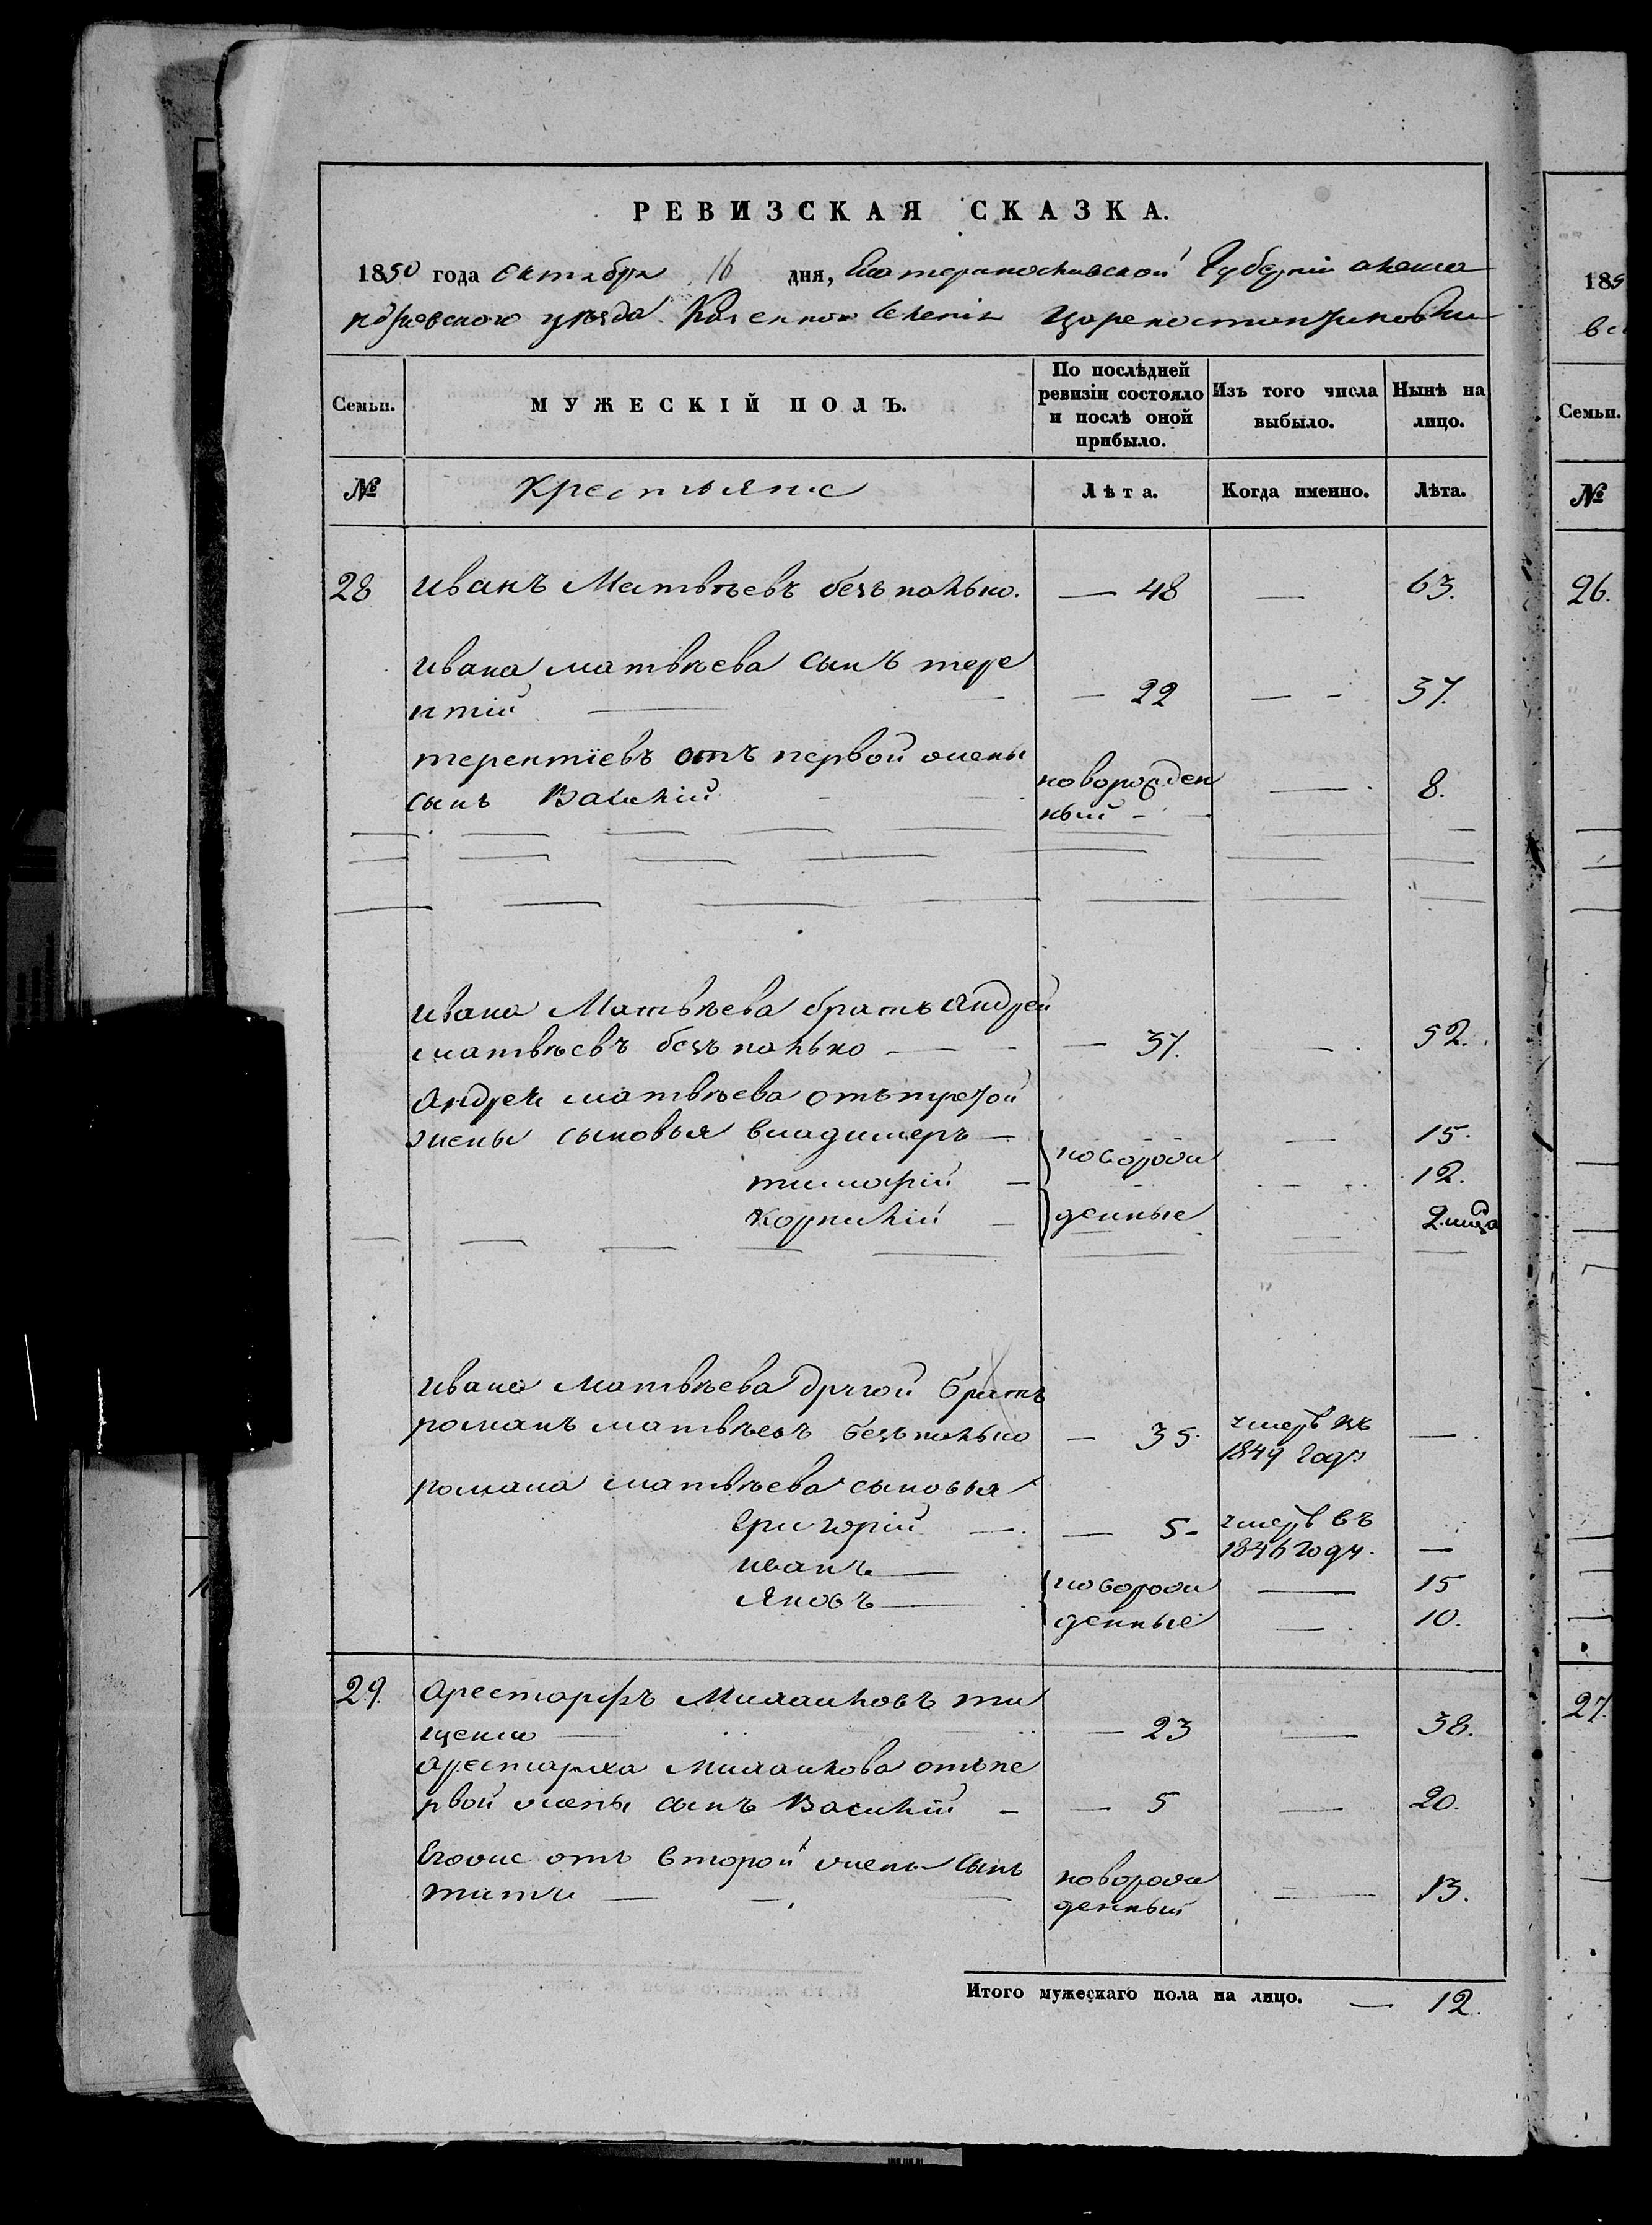 РЕВИЗСКАЯ СКАЗКА.
1850 года октября 16 дня, Екатеринославской Губернии алекса
ндровского уезда Казенного селенія Цареконстантиновки
Семьи.
МУЖЕСКІЙ ПОЛЪ.
По послѣдней ревизіи состояло и послѣ оной прибыло.
Изъ того числа выбыло.
Нынѣ на лицо.
№
Крестьяне
Лѣта.
Когда именно.
Лѣта.
28 Иванъ Матвѣевъ безъпалько. — 48 — 63.
Ивана матвѣева сынъ тере
нтій — — 22 — - 37.
терентіевъ отъ первой жены
сынъ Василій новорожден ный - — 8.
Ивана Матвѣева братъ Андрей
матвѣевъ безъпалько — — 37. — 52.
Андрея матвѣева отътретой
жены сыновья владимеръ — новорож — 15.
тимофій — 12.
Корнилій денные 2 мица
Ивана Матвѣева другой братъ
романъ матвѣевъ безъпалько — 35. умеръ въ 1849 году —
романа матвѣева сыновья
Григорій — — 5 - умеръ въ 1846 году. —
иванъ — новорож — 15
Яковъ — денные — 10.
29. Арестархъ Михаиловъ ти
щенко — — 23 — 38.
Арестарха Михаилова отъпе
рвой жены сынъ Василій — — 5 — 20.
Егоже отъ второй жены сынъ
титъ — новорож денный — 13.
Итого мужескаго пола на лицо. — 12.
185
Семьи.
№
26.
27.